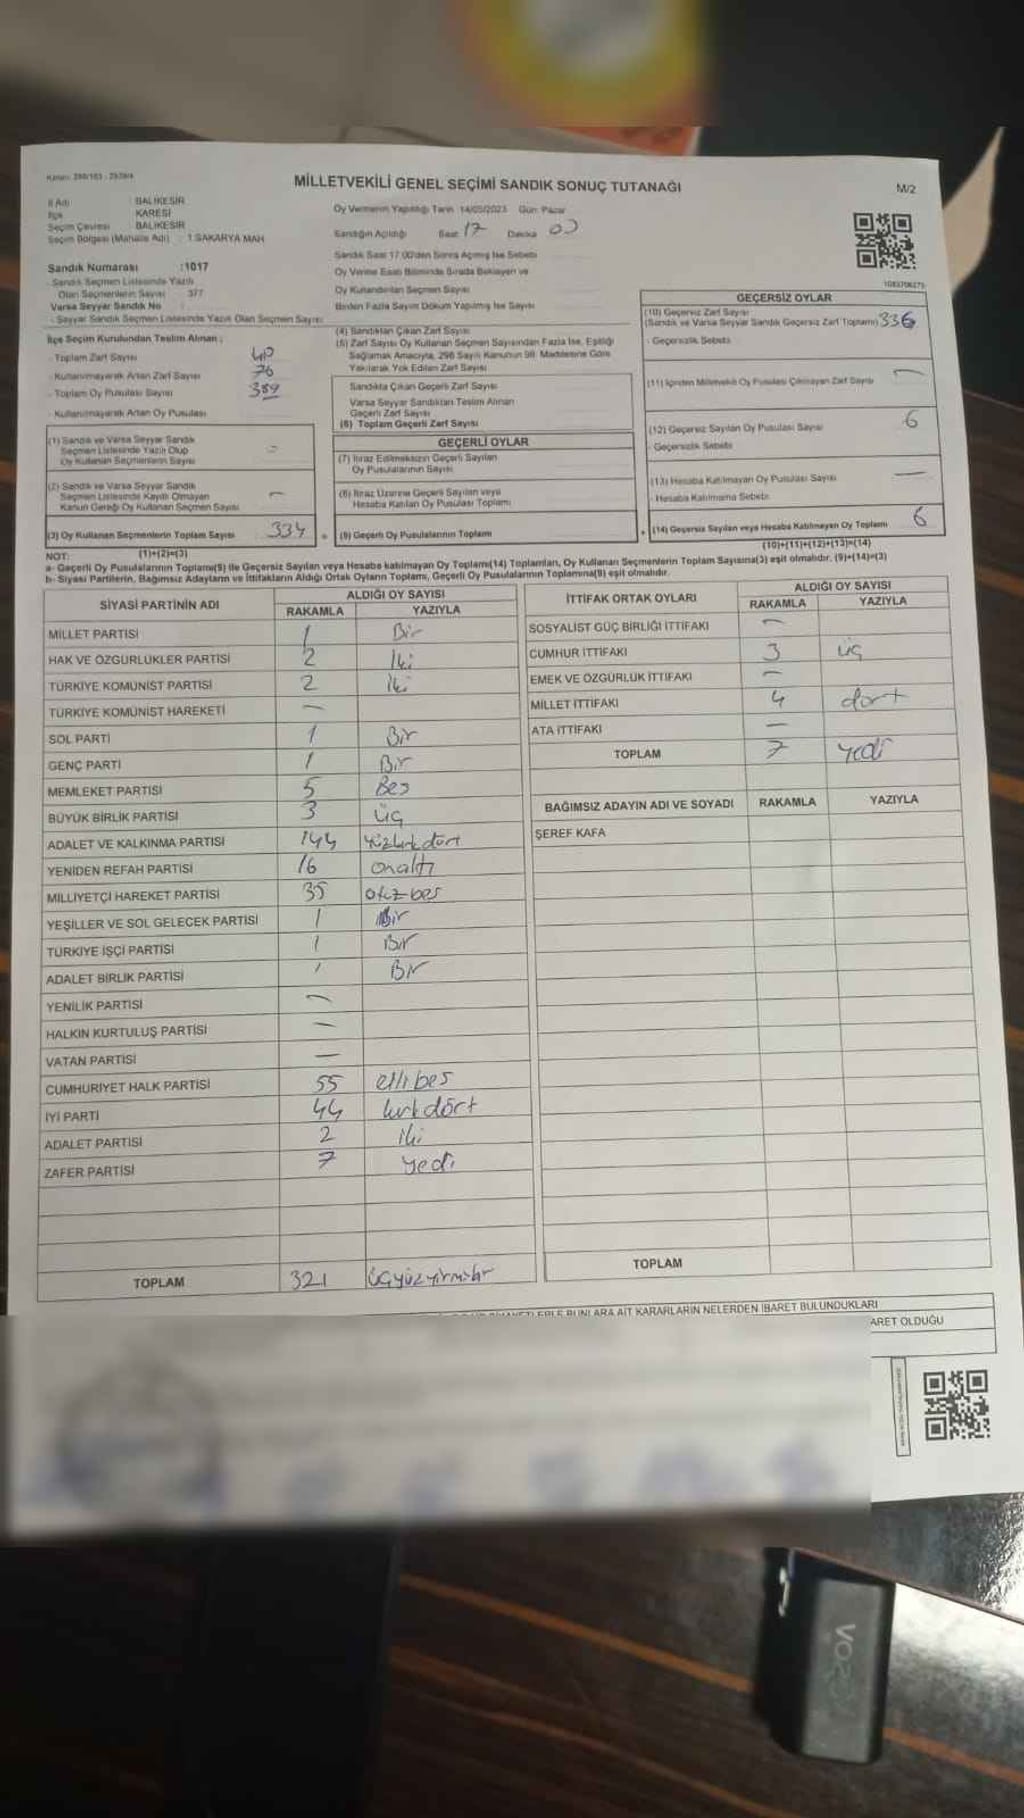 MİLLETVEKİLİ GENEL SEÇİMİ SANDIK SONUÇ TUTANAĞI
M/2
İl Adı : BALIKESİR
İlçe : KARESİ
Seçim Çevresi : BALIKESİR
Seçim Bölgesi (Mahalle Adı) : 1.SAKARYA MAH
Oy Vermenin Yapıldığı Tarih 14/05/2023 Gün: Pazar
Sandığın Açıldığı Saat 17 Dakika
Sandık Saat 17:00'den Sonra Açılmış İse Sebebi
Oy Verme Saati Bitiminde Sırada Bekleyen ve
Oy Kullandırılan Seçmen Sayısı
Birden Fazla Sayım Döküm Yapılmış İse Sayısı
Sandık Numarası :1017
- Sandık Seçmen Listesinde Yazılı
Olan Seçmenlerin Sayısı 377
Varsa Seyyar Sandık No
- Seyyar Sandık Seçmen Listesinde Yazılı Olan Seçmen Sayısı:
İlçe Seçim Kurulundan Teslim Alınan :
- Toplam Zarf Sayısı
- Kullanılmayarak Artan Zarf Sayısı 76
- Toplam Oy Pusulası Sayısı
- Kullanılmayarak Artan Oy Pusulası
(1) Sandık ve Varsa Seyyar Sandık
Seçmen Listesinde Yazılı Olup
Oy Kullanan Seçmenlerin Sayısı
(2) Sandık ve Varsa Seyyar Sandık
Seçmen Listesinde Kayıtlı Olmayan
Kanun Gereği Oy Kullanan Seçmen Sayısı
(3) Oy Kullanan Seçmenlerin Toplam Sayısı 334
(1)+(2)=(3)
(4) Sandıktan Çıkan Zarf Sayısı
(5) Zarf Sayısı Oy Kullanan Seçmen Sayısından Fazla İse, Eşitliği
Sağlamak Amacıyla, 298 Sayılı Kanunun 98. Maddesine Göre
Yakılarak Yok Edilen Zarf Sayısı
Sandıkta Çıkan Geçerli Zarf Sayısı
Varsa Seyyar Sandıktan Teslim Alınan
Geçerli Zarf Sayısı
(6) Toplam Geçerli Zarf Sayısı
GEÇERLİ OYLAR
(7) İtiraz Edilmeksizin Geçerli Sayılan
Oy Pusulalarının Sayısı
(8) İtiraz Üzerine Geçerli Sayılan veya
Hesaba Katılan Oy Pusulası Toplamı
(9) Geçerli Oy Pusulalarının Toplamı
GEÇERSİZ OYLAR
(10) Geçersiz Zarf Sayısı
(Sandık ve Varsa Seyyar Sandık Geçersiz Zarf Toplamı) 336
- Geçersizlik Sebebi
(11) İçinden Milletvekili Oy Pusulası Çıkmayan Zarf Sayısı —
(12) Geçersiz Sayılan Oy Pusulası Sayısı 6
- Geçersizlik Sebebi
(13) Hesaba Katılmayan Oy Pusulası Sayısı —
- Hesaba Katılmama Sebebi
(14) Geçersiz Sayılan veya Hesaba Katılmayan Oy Toplamı 6
(10)+(11)+(12)+(13)=(14)
NOT:
a- Geçerli Oy Pusulalarının Toplamı(9) ile Geçersiz Sayılan veya Hesaba katılmayan Oy Toplamı(14) Toplamları, Oy Kullanan Seçmenlerin Toplam Sayısına(3) eşit olmalıdır. (9)+(14)=(3)
b- Siyasi Partilerin, Bağımsız Adayların ve İttifakların Aldığı Ortak Oyların Toplamı, Geçerli Oy Pusulalarının Toplamına(9) eşit olmalıdır.
SİYASİ PARTİNİN ADI ALDIĞI OY SAYISI
RAKAMLA YAZIYLA
MİLLET PARTİSİ 1 Bir
HAK VE ÖZGÜRLÜKLER PARTİSİ 2 İki
TÜRKİYE KOMÜNİST PARTİSİ 2 İki
TÜRKİYE KOMÜNİST HAREKETİ —
SOL PARTİ 1 Bir
GENÇ PARTİ 1 Bir
MEMLEKET PARTİSİ 5 Beş
BÜYÜK BİRLİK PARTİSİ 3 üç
ADALET VE KALKINMA PARTİSİ 144 yüzkırkdört
YENİDEN REFAH PARTİSİ 16 onaltı
MİLLİYETÇİ HAREKET PARTİSİ 35 otuzbeş
YEŞİLLER VE SOL GELECEK PARTİSİ 1 Bir
TÜRKİYE İŞÇİ PARTİSİ 1 Bir
ADALET BİRLİK PARTİSİ 1 Bir
YENİLİK PARTİSİ —
HALKIN KURTULUŞ PARTİSİ —
VATAN PARTİSİ —
CUMHURİYET HALK PARTİSİ 55 ellibeş
İYİ PARTİ 44 kırkdört
ADALET PARTİSİ 2 iki
ZAFER PARTİSİ 7 yedi
TOPLAM 321 üçyüzyirmibir
İTTİFAK ORTAK OYLARI ALDIĞI OY SAYISI
RAKAMLA YAZIYLA
SOSYALİST GÜÇ BİRLİĞİ İTTİFAKI —
CUMHUR İTTİFAKI 3 üç
EMEK VE ÖZGÜRLÜK İTTİFAKI —
MİLLET İTTİFAKI 4 dört
ATA İTTİFAKI —
TOPLAM 7 yedi
BAĞIMSIZ ADAYIN ADI VE SOYADI RAKAMLA YAZIYLA
ŞEREF KAFA
TOPLAM
BUNLARA AİT KARARLARIN NELERDEN İBARET BULUNDUKLARI
ARET OLDUĞU